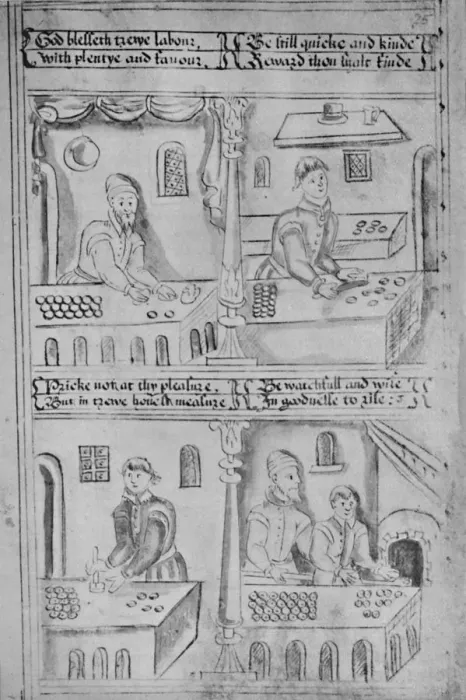 God blesseth trewe labour,
With plentye and fauour.
Be still quicke and kinde
Reward thou shalt finde
Pricke not at thy pleasure.
But in trewe honest measure
Be watchfull and wise
In goodnesse to rise :